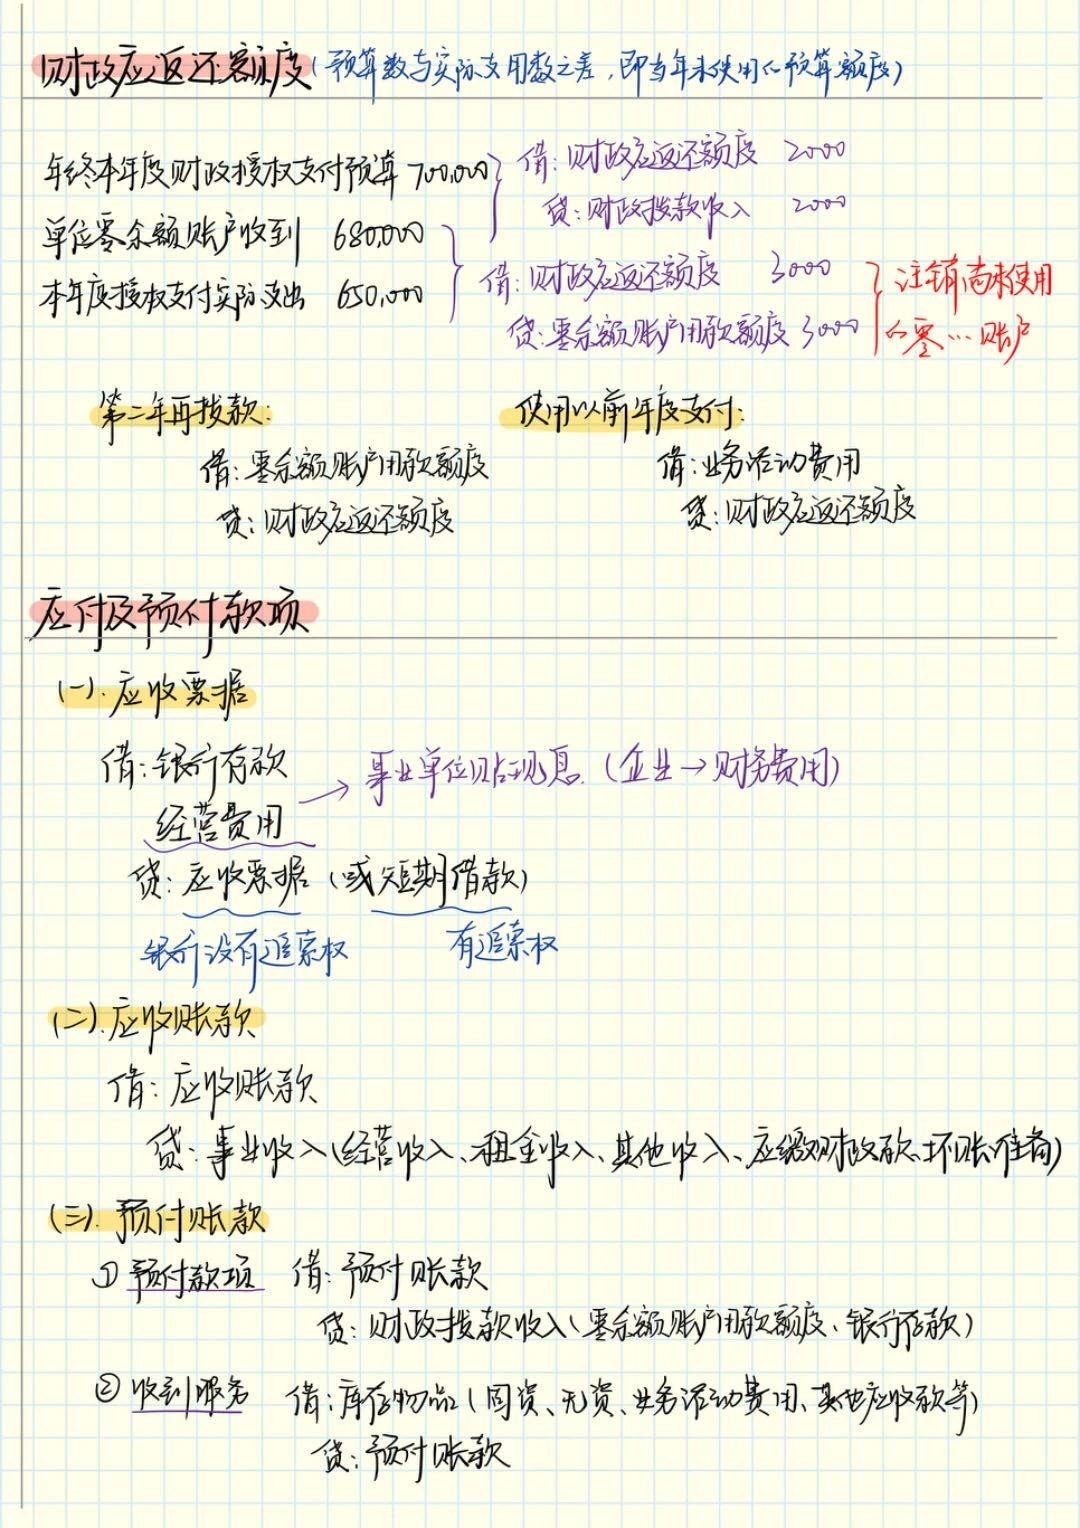 财政应返还额度（预算数与实际支用数之差，即当年未使用的预算额度）
年终本年度财政授权支付预算 700,000
借：财政应返还额度 2000
贷：财政拨款收入 2000
单位零余额账户收到 680,000
本年度授权支付实际支出 650,000
借：财政应返还额度 3000
贷：零余额账户用款额度 3000
注销尚未使用
的零…账户
第二年再拨款：
借：零余额账户用款额度
贷：财政应返还额度
使用以前年度支付：
借：业务活动费用
贷：财政应返还额度
应付及预付款项
(一). 应收票据
借：银行存款
经营费用
→ 事业单位贴现息.（企业→财务费用）
贷：应收票据（或短期借款）
银行没有追索权
有追索权
(二). 应收账款
借：应收账款
贷：事业收入（经营收入、租金收入、其他收入、应缴财政款、坏账准备）
(三). 预付账款
① 预付款项 借：预付账款
贷：财政拨款收入（零余额账户用款额度、银行存款）
② 收到服务 借：库存物品（固资、无资、业务活动费用、其他应收款等）
贷：预付账款